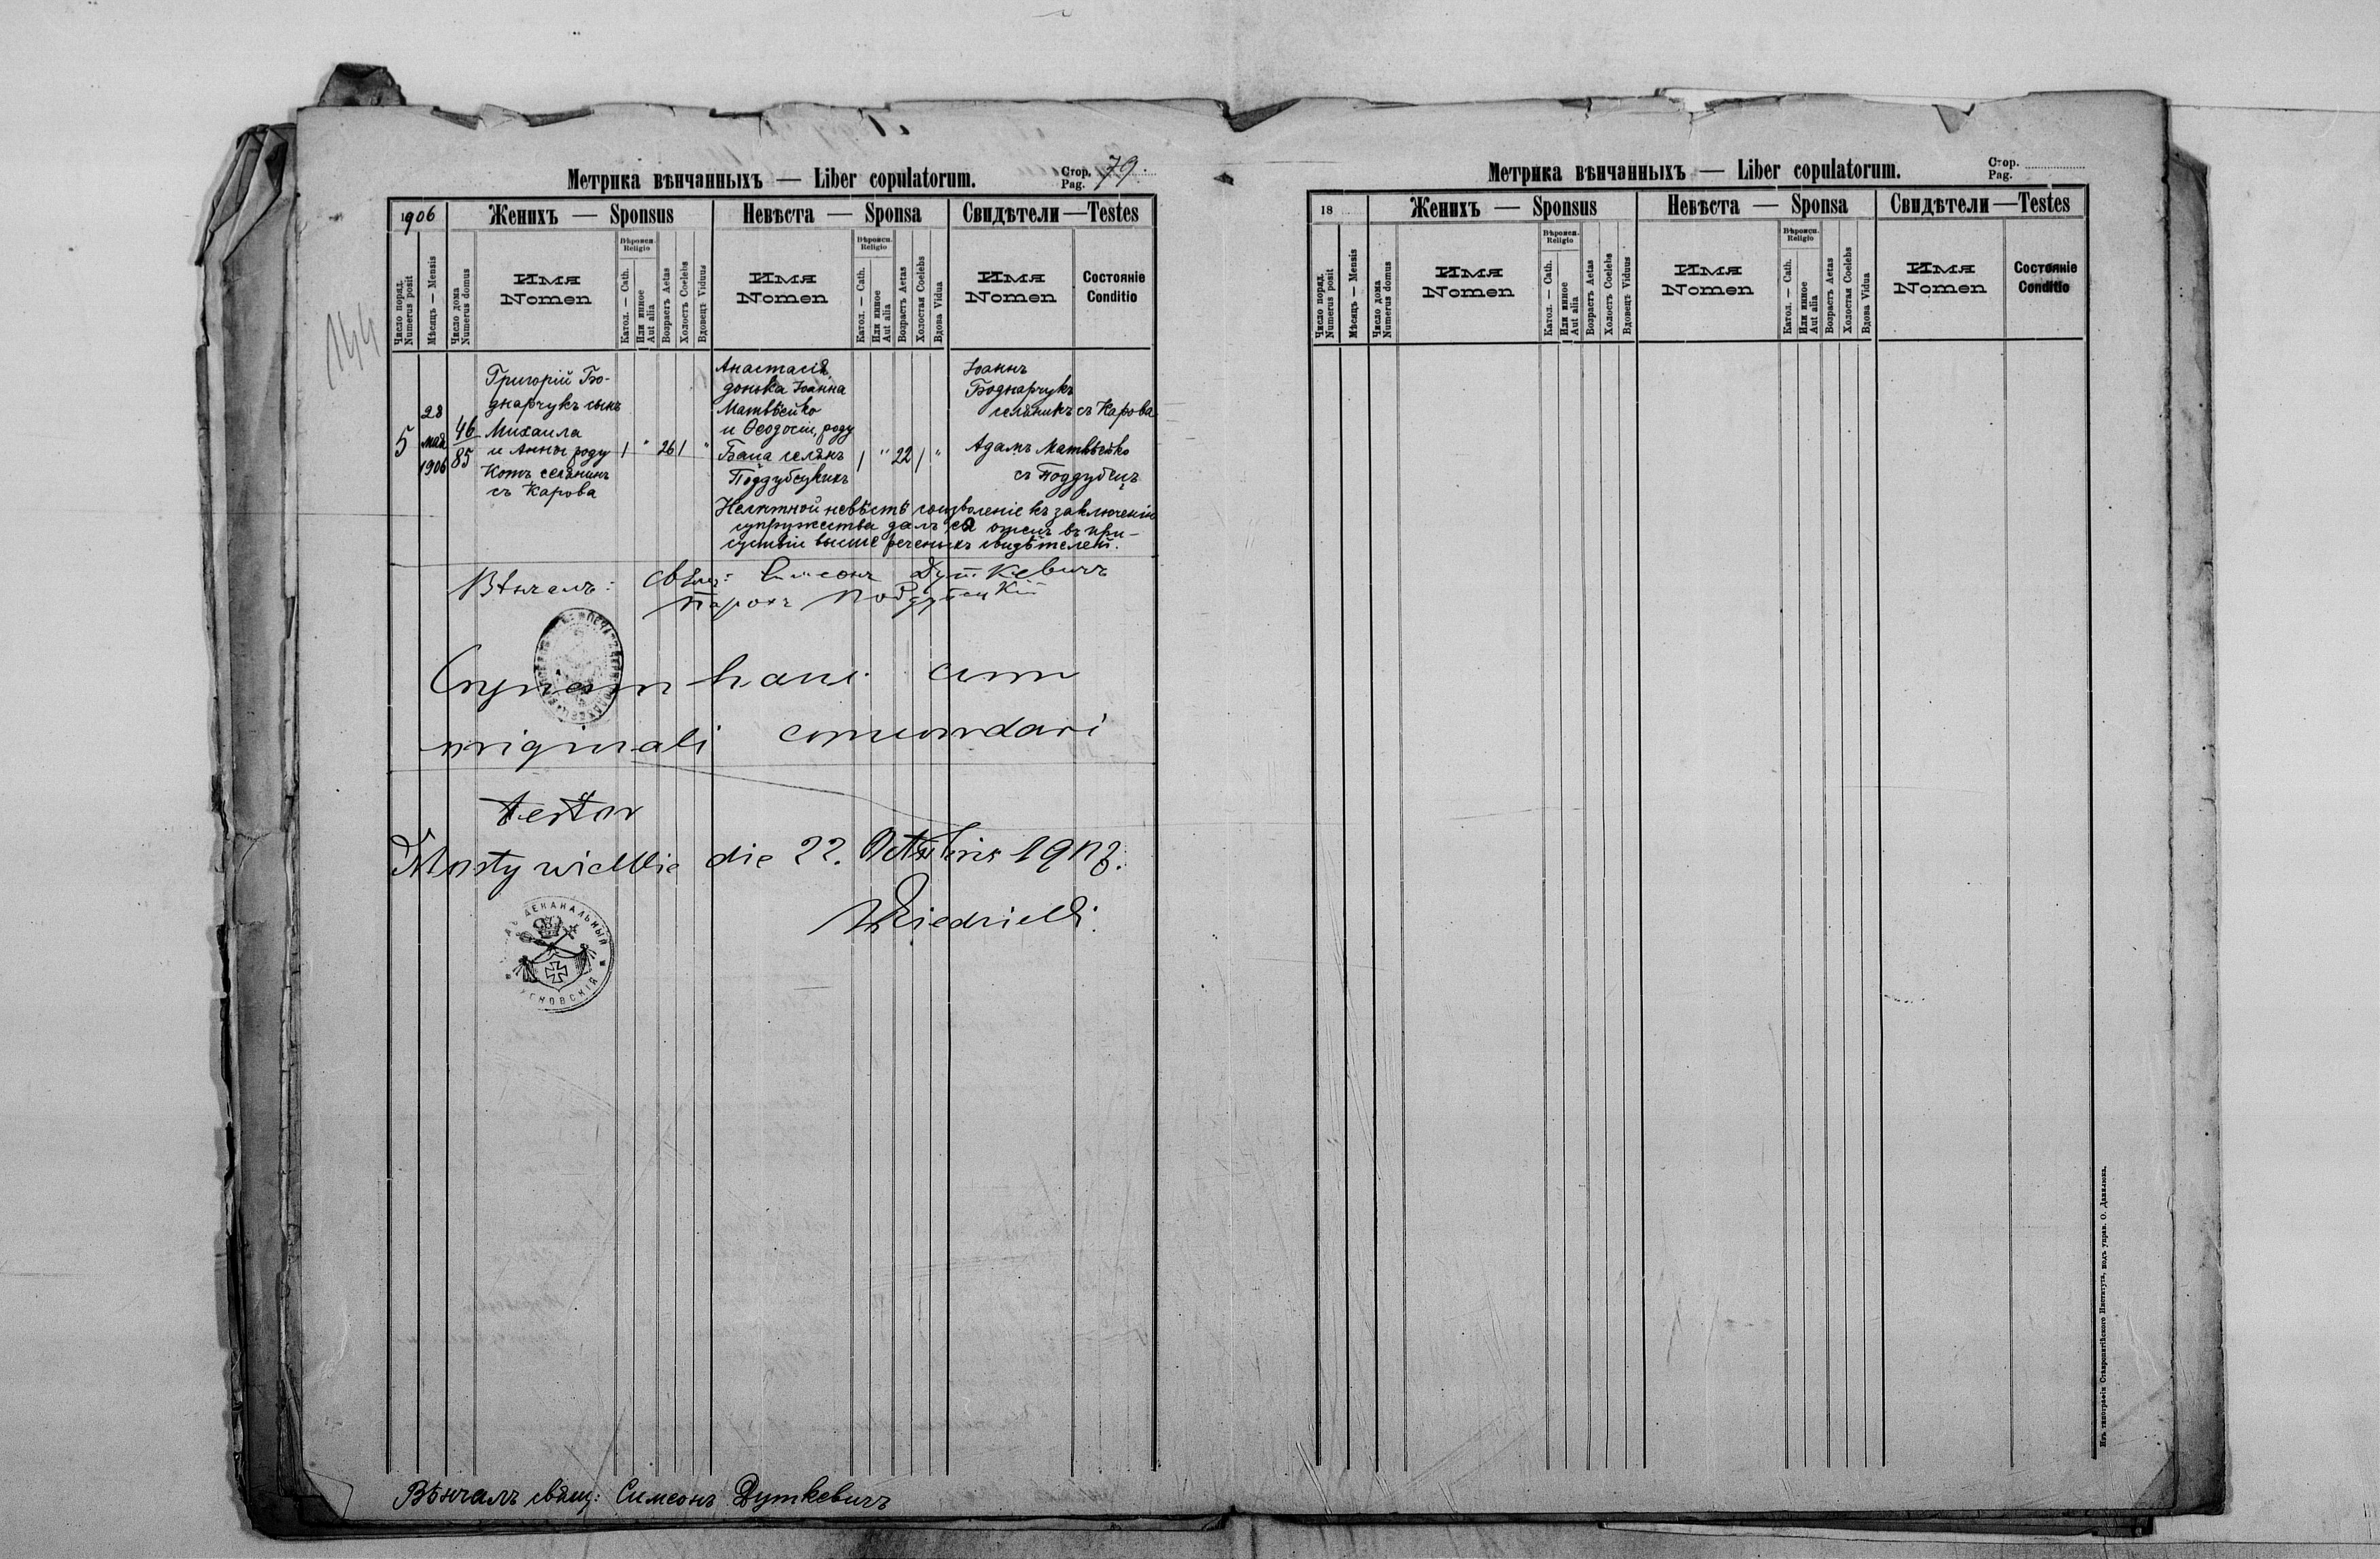 Метрика вѣнчанныхъ — Liber copulatorum.
Стор. Pag. 79.
1906
Женихъ — Sponsus
Невѣста — Sponsa
Свидѣтели — Testes
Число поряд. Numerus posit
Мѣсяцъ — Mensis
Число дома Numerus domus
Имя Nomen
Вѣроисп. Religio
Катол. — Cath.
Или инное Aut alia
Возрастъ Aetas
Холостъ Coelebs
Вдовецъ Viduus
Имя Nomen
Вѣроисп. Religio
Катол. — Cath.
Или инное Aut alia
Возрастъ Aetas
Холостая Coelebs
Вдова Vidua
Имя Nomen
Состояніе Conditio
144
5
28
май
1906
46
85
Григорій Бо-
днарчукъ сынъ
Михаила
и Анны роду
Котъ селянинъ
съ Карова
1 " 26 1 "
Анастасія
донька Іоанна
Матвѣйко
и Ѳеодосіи, роду
Баша селянъ
Поддубецкихъ
1 " 22 1 "
Іоаннъ
Боднарчукъ
селянинъ съ Карова
Адамъ Матвѣйко
съ Поддубецъ
Нелѣтной невѣстѣ соизволеніе къ заключенію
супружества далъ ея отецъ въ при-
сутствіи высше реченныхъ свидѣтелей.
Вѣнчалъ: свящ: Симеонъ Дуткевичъ
парохъ Поддубецкій
hanc cum
originali concordari
testor
Mosty wielkie die 22. Octobris
ДЕКАНАЛЬНЫЙ
Вѣнчалъ свящ: Симеонъ Дуткевичъ
Метрика вѣнчанныхъ — Liber copulatorum.
Стор. Pag.
18
Женихъ — Sponsus
Невѣста — Sponsa
Свидѣтели — Testes
Число поряд. Numerus posit
Мѣсяцъ — Mensis
Число дома Numerus domus
Имя Nomen
Вѣроисп. Religio
Катол. — Cath.
Или инное Aut alia
Возрастъ Aetas
Холостъ Coelebs
Вдовецъ Viduus
Имя Nomen
Вѣроисп. Religio
Катол. — Cath.
Или инное Aut alia
Возрастъ Aetas
Холостая Coelebs
Вдова Vidua
Имя Nomen
Состояніе Conditio
Изъ типографіи Ставропигійского Института, подъ управ. О. Данилюка.